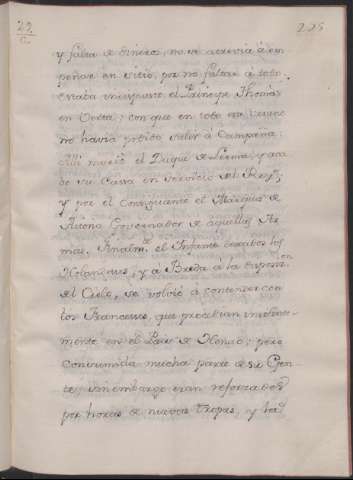 22
C.
225
y falta de dineros, no se atrevia á em
peñar en sitio, por no faltar á todo.
Estaba incapante el Principe Thomás
en Ostia; con que en todo era Verano
no havia podido salir á Campaña:
Alli murió el Duque de Lerma, y aca
bó su Cassa en servicio del Rey;
y por el Consiguiente el Marqués de
Aitona Governador de aquellas Ar
mas. Finalm.te el Infante dexados los
Holandeses, y á Breda á la
del Cielo, se volvió á contener con
los Franceses, que procedian
mente en el Pais de Henao; pero
Consumida mucha parte de su Gen
te, sin embargo eran reforzados
por horas de nuevas Tropas, y